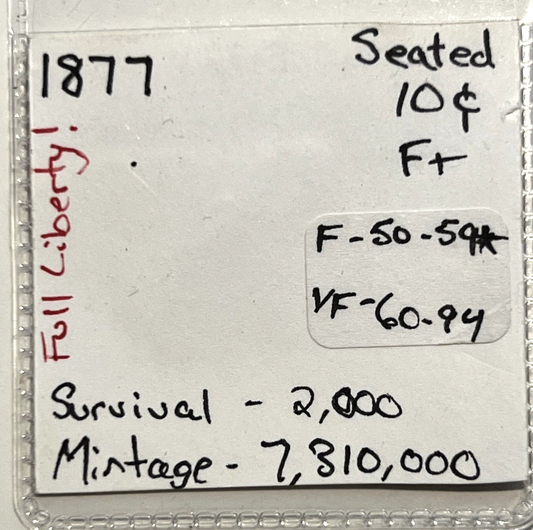 1877
Seated
10¢
F+
Full Liberty!
F-50-59*
VF-60-94
Survival - 2,000
Mintage - 7,310,000